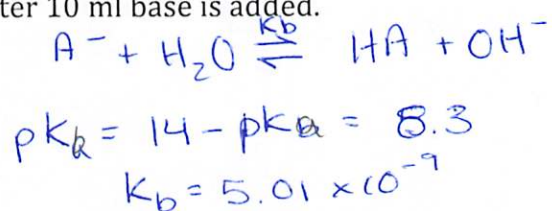 ter 10 ml base is added.
A⁻ + H₂O ⇌ Kb HA + OH⁻
pKb = 14 - pKa = 8.3
Kb = 5.01 × 10⁻⁹